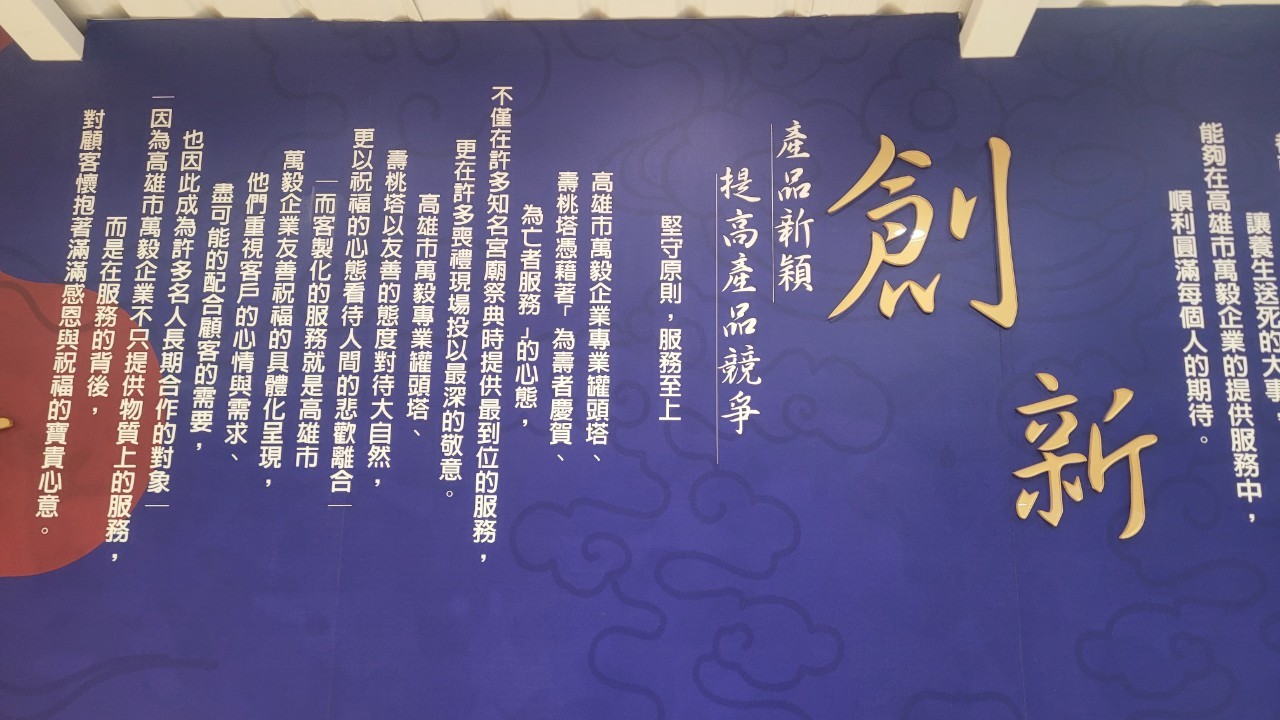 讓養生送死的大事，
能夠在高雄市萬毅企業的提供服務中，
順利圓滿每個人的期待。
創新
產品新穎
提高產品競爭
堅守原則，服務至上
高雄市萬毅企業專業罐頭塔、
壽桃塔憑藉著「為壽者慶賀、
為亡者服務」的心態，
不僅在許多知名宮廟祭典時提供最到位的服務，
更在許多喪禮現場投以最深的敬意。
高雄市萬毅專業罐頭塔、
壽桃塔以友善的態度對待大自然，
更以祝福的心態看待人間的悲歡離合—
—而客製化的服務就是高雄市
萬毅企業友善祝福的具體化呈現，
他們重視客戶的心情與需求、
盡可能的配合顧客的需要，
也因此成為許多名人長期合作的對象—
—因為高雄市萬毅企業不只提供物質上的服務，
而是在服務的背後，
對顧客懷抱著滿滿感恩與祝福的寶貴心意。